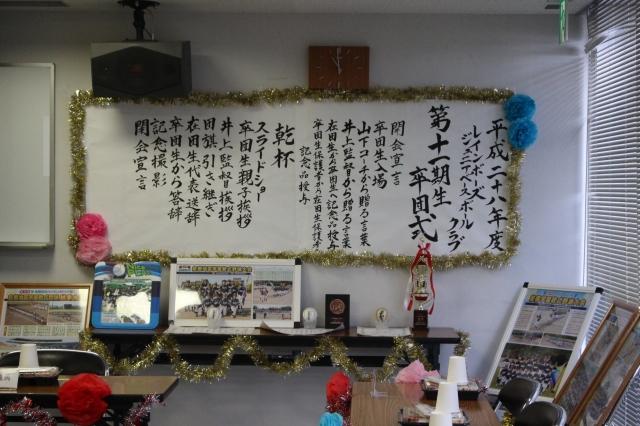 平成二十八年度
レインボーズ
ジュニアベースボールクラブ
第十一期生
卒団式
開会宣言
卒団生入場
山下コーチから贈る言葉
井上監督から贈る言葉
在団生から卒団生へ記念品授与
卒団生保護者から在団生保護者へ
記念品授与
乾杯
スライドショー
卒団生親子挨拶
井上監督挨拶
団旗引き継ぎ
在団生代表送辞
卒団生から答辞
記念撮影
閉会宣言